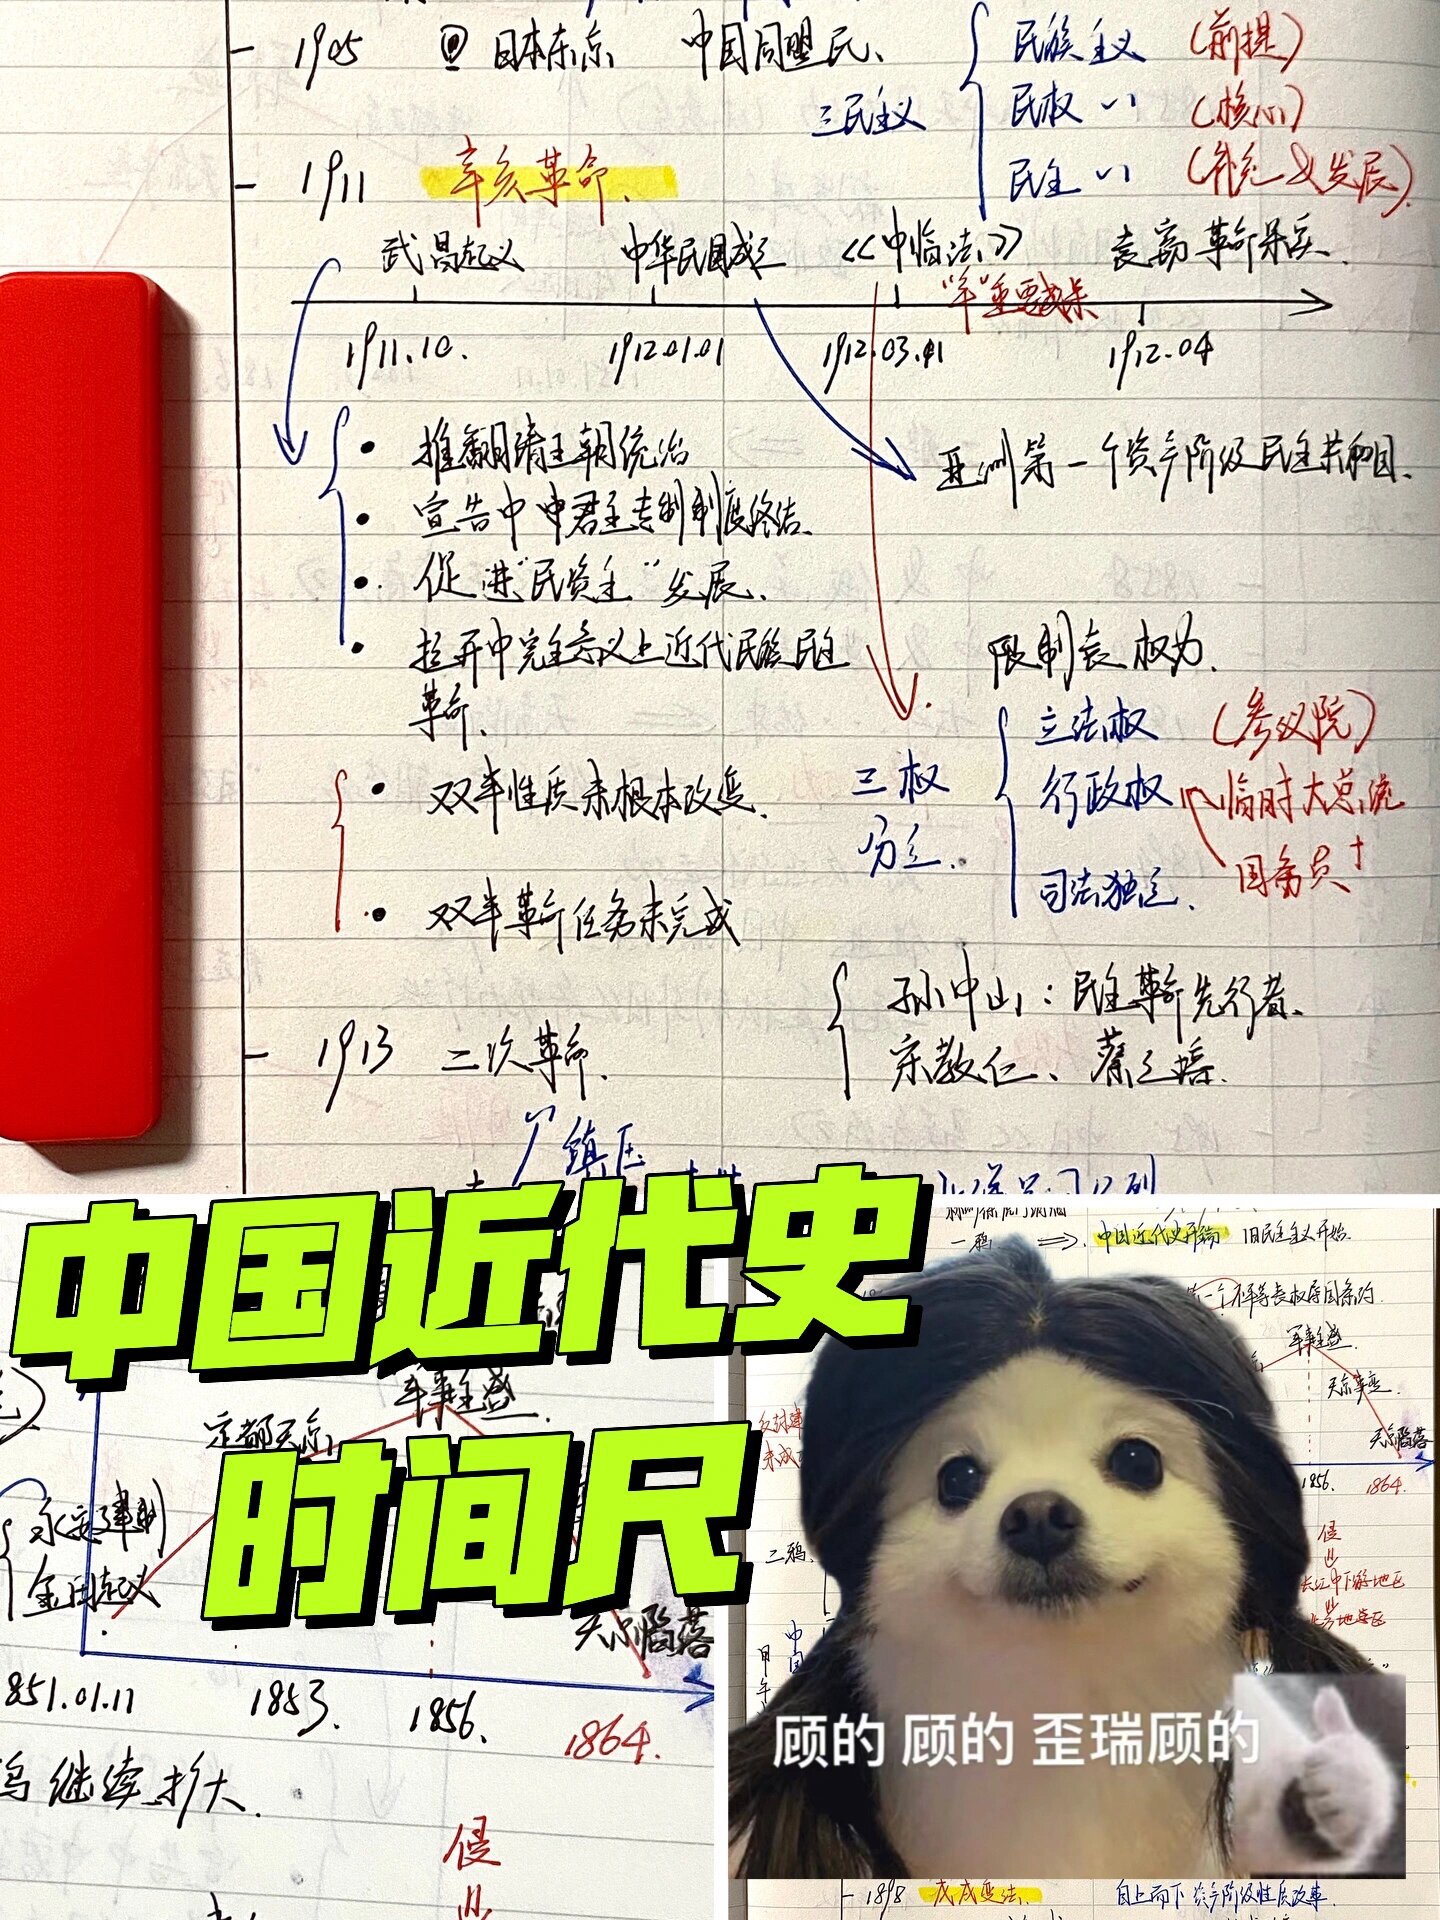 - 1905 日本东京 中国同盟
三民主义
民族主义 (前提)
民权 〃 (核心)
民生 〃 (补充&发展).
- 1911 辛亥革命.
武昌起义 中华民国成立 《中临法》 袁窃革命果实.
"辛"重要成果
1911.10. 1912.01.01 1912.03.11 1912.04
• 推翻清王朝统治
• 宣告中 君主专制制度终结.
• 促进"民资主"发展.
• 拉开中完全意义上近代民族民主
革命.
亚洲第一个资产阶级民主共和国.
限制袁权力.
三权
分立.
立法权 (参议院)
行政权 临时大总统
国务员
司法独立.
• 双半性质未根本改变.
• 双半革命任务未完成
孙中山:民主革命先行者.
宋教仁、蔡元培.
- 1913 二次革命.
镇压
中国近代史
时间尺
军事全盛.
定都天京
永安建制
金田起义
天京陷落
851.01.11 1853. 1856. 1864.
继续扩大.
侵
一鸦 ⇒. 中国近代史开端 旧民主主义开始.
一个不平等丧权辱国条约.
军事全盛
天京事变.
天京陷落
1856. 1864.
二鸦.
侵
长江中下游地区
甲
午
顾的 顾的 歪瑞顾的
- 1898 戊戌变法. 自上而下 资产阶级性质改革.